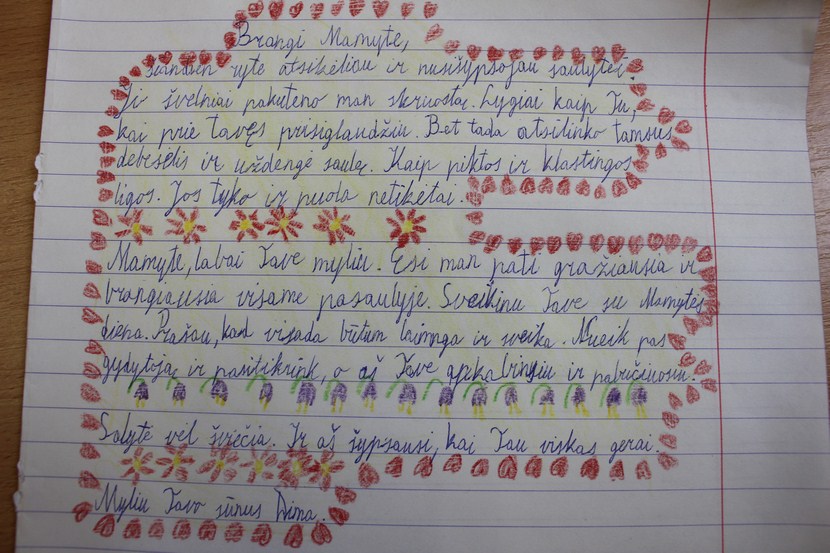 Brangi Mamyte,
šiandien ryte atsikėliau ir nusišypsojau saulytei.
Ji švelniai pakuteno man skruostą. Lygiai kaip Tu,
kai prie tavęs prisiglaudžiu. Bet tada atsilinko tamsus
debesėlis ir uždengė saulę. Kaip piktos ir klastingos
ligos. Jos tyko ir puola netikėtai.
Mamyte, labai Tave myliu. Esi man pati gražiausia ir
brangiausia visame pasaulyje. Sveikinu Tave su Mamytės
diena. Prašau, kad visada būtum laiminga ir sveika. Nueik pas
gydytoją ir pasitikrink, o aš Tave apkabinsiu ir pabučiuosiu.
Salytė vėl šviečia. Ir aš šypsausi, kai Tau viskas gerai.
Myliu Tavo sūnus Dima.